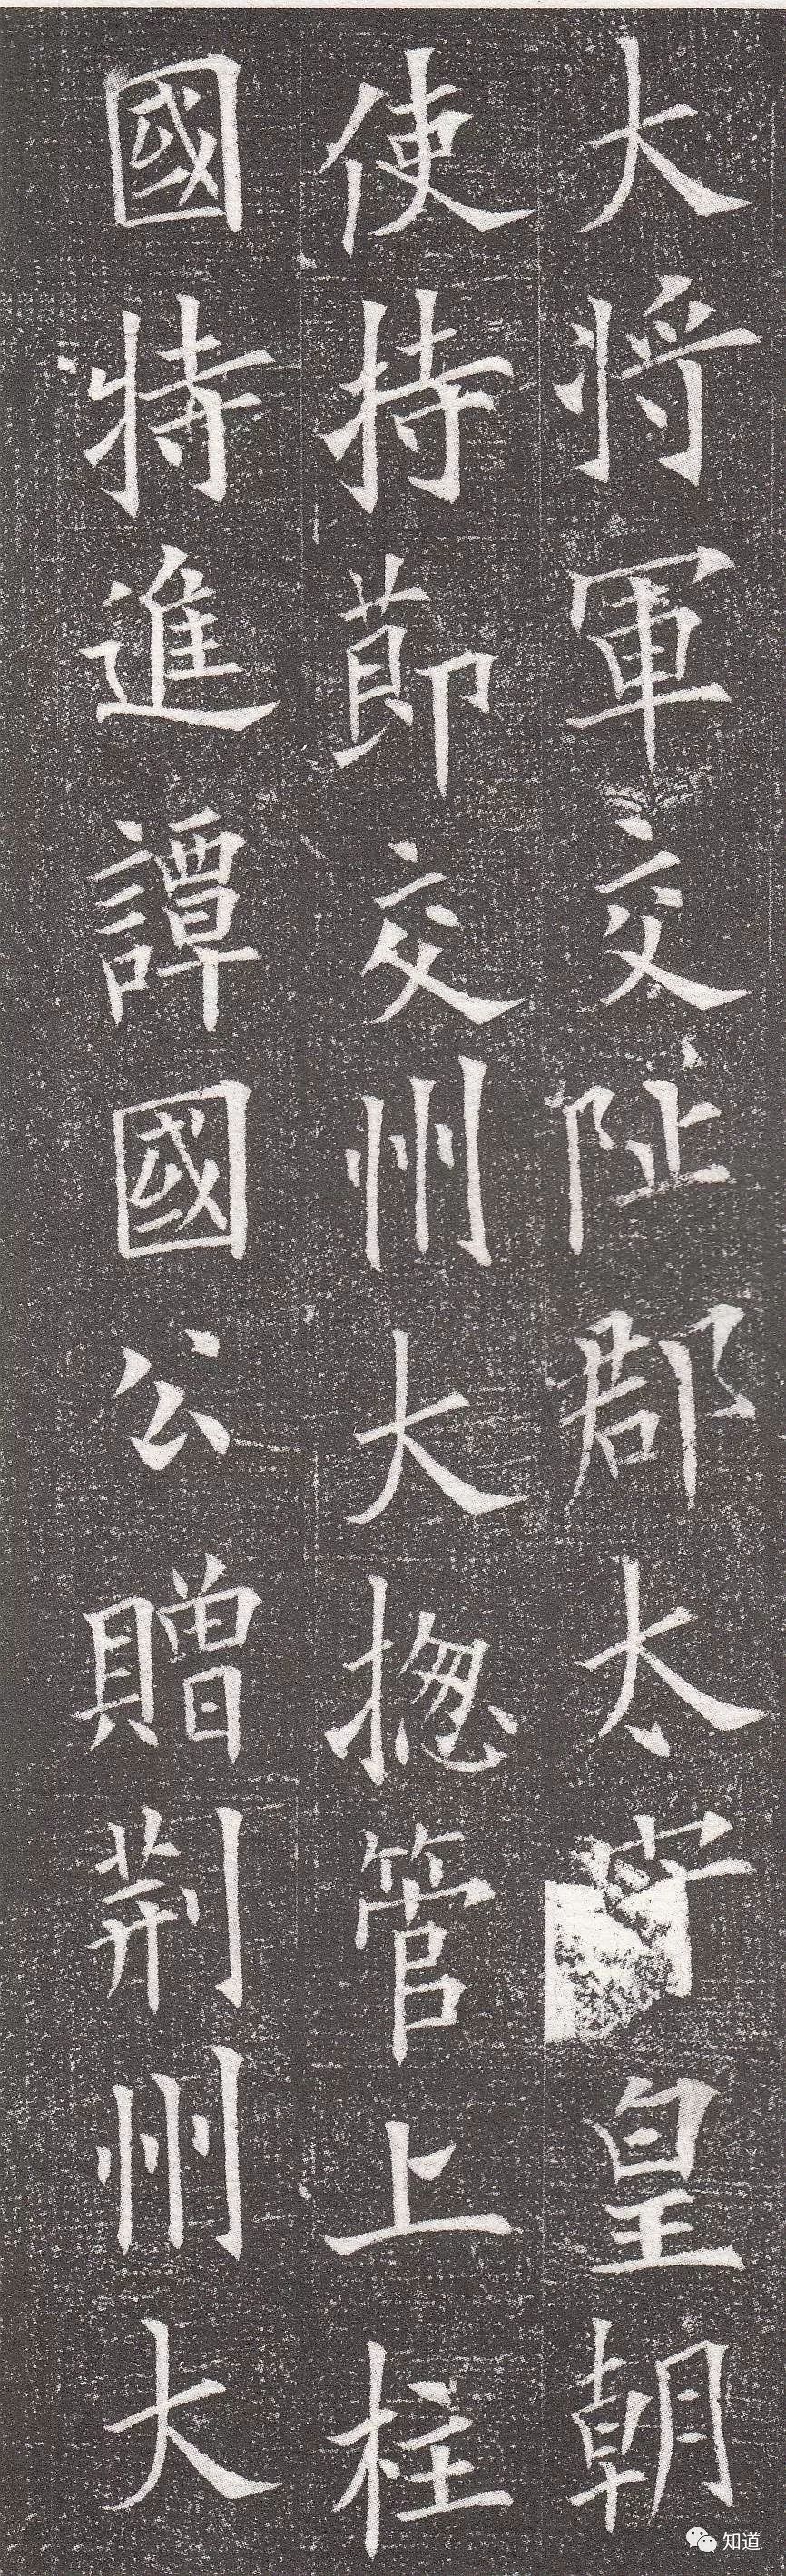 大将軍交阯郡太守皇朝
使持節交州大揔管上柱
國特進譚國公贈荆州大
知道